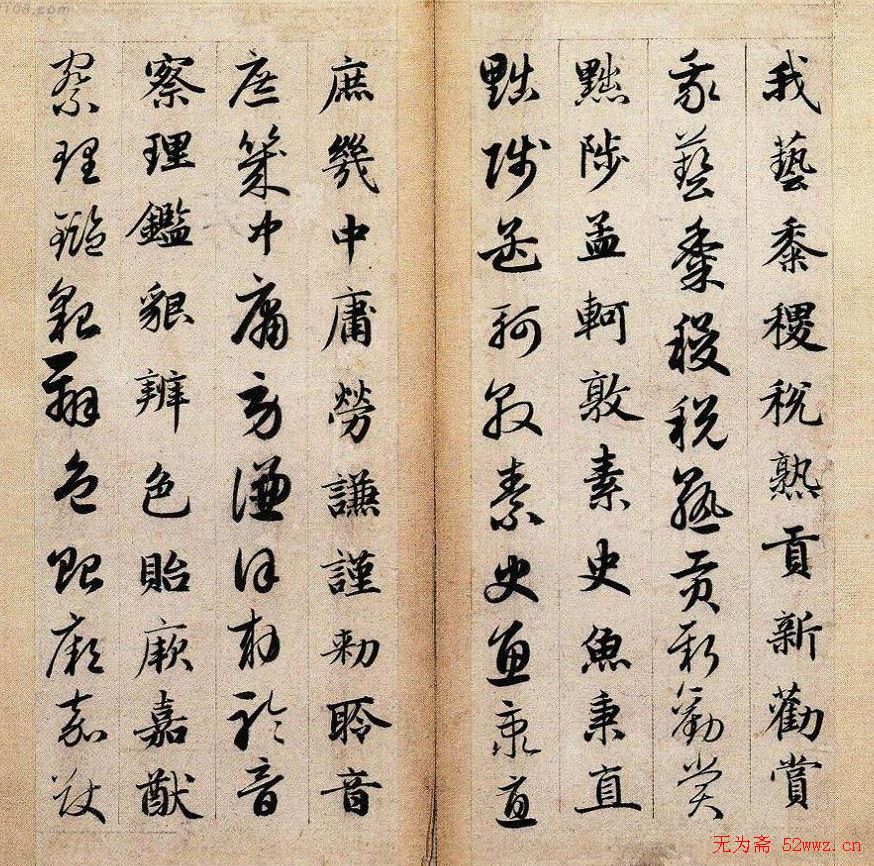 我藝黍稷稅熟貢新勸賞
我藝黍稷稅熟貢新勸賞
黜陟孟軻敦素史魚秉直
黜陟孟軻敦素史魚秉直
庶幾中庸勞謙謹勅聆音
庶幾中庸勞謙謹勅聆音
察理鑑貌辨色貽厥嘉猷
察理鑑貌辨色貽厥嘉猷
无为斋 52wwz.cn